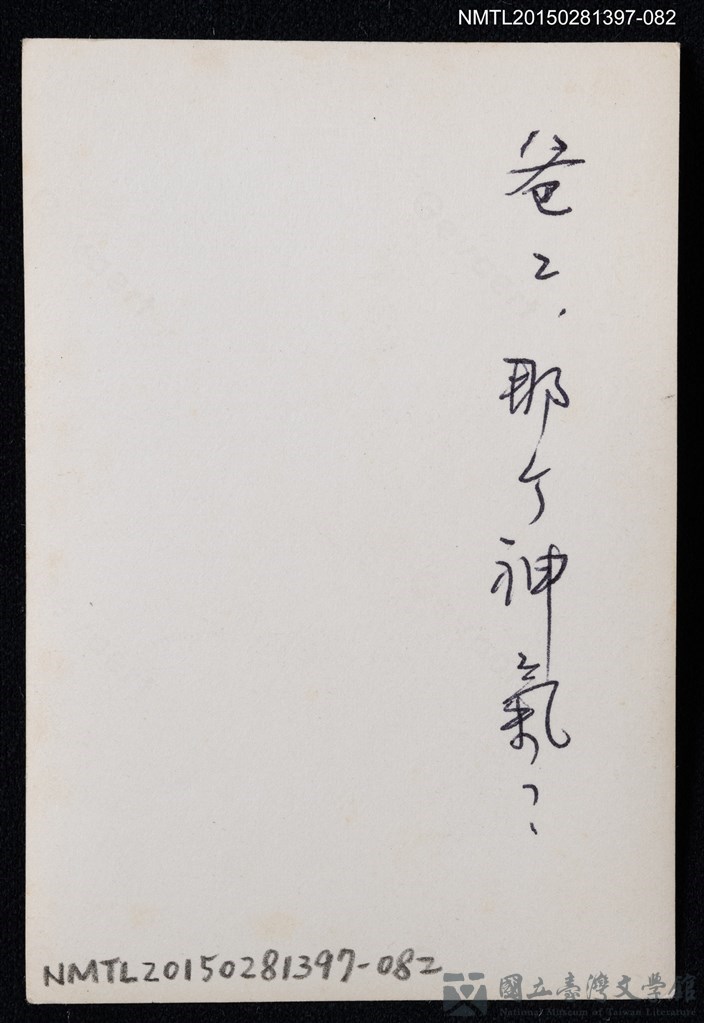 NMTL20150281397-082
爸〻，那个神氣？
NMTL20150281397-082
國立臺灣文學館
National Museum of Taiwan Literature